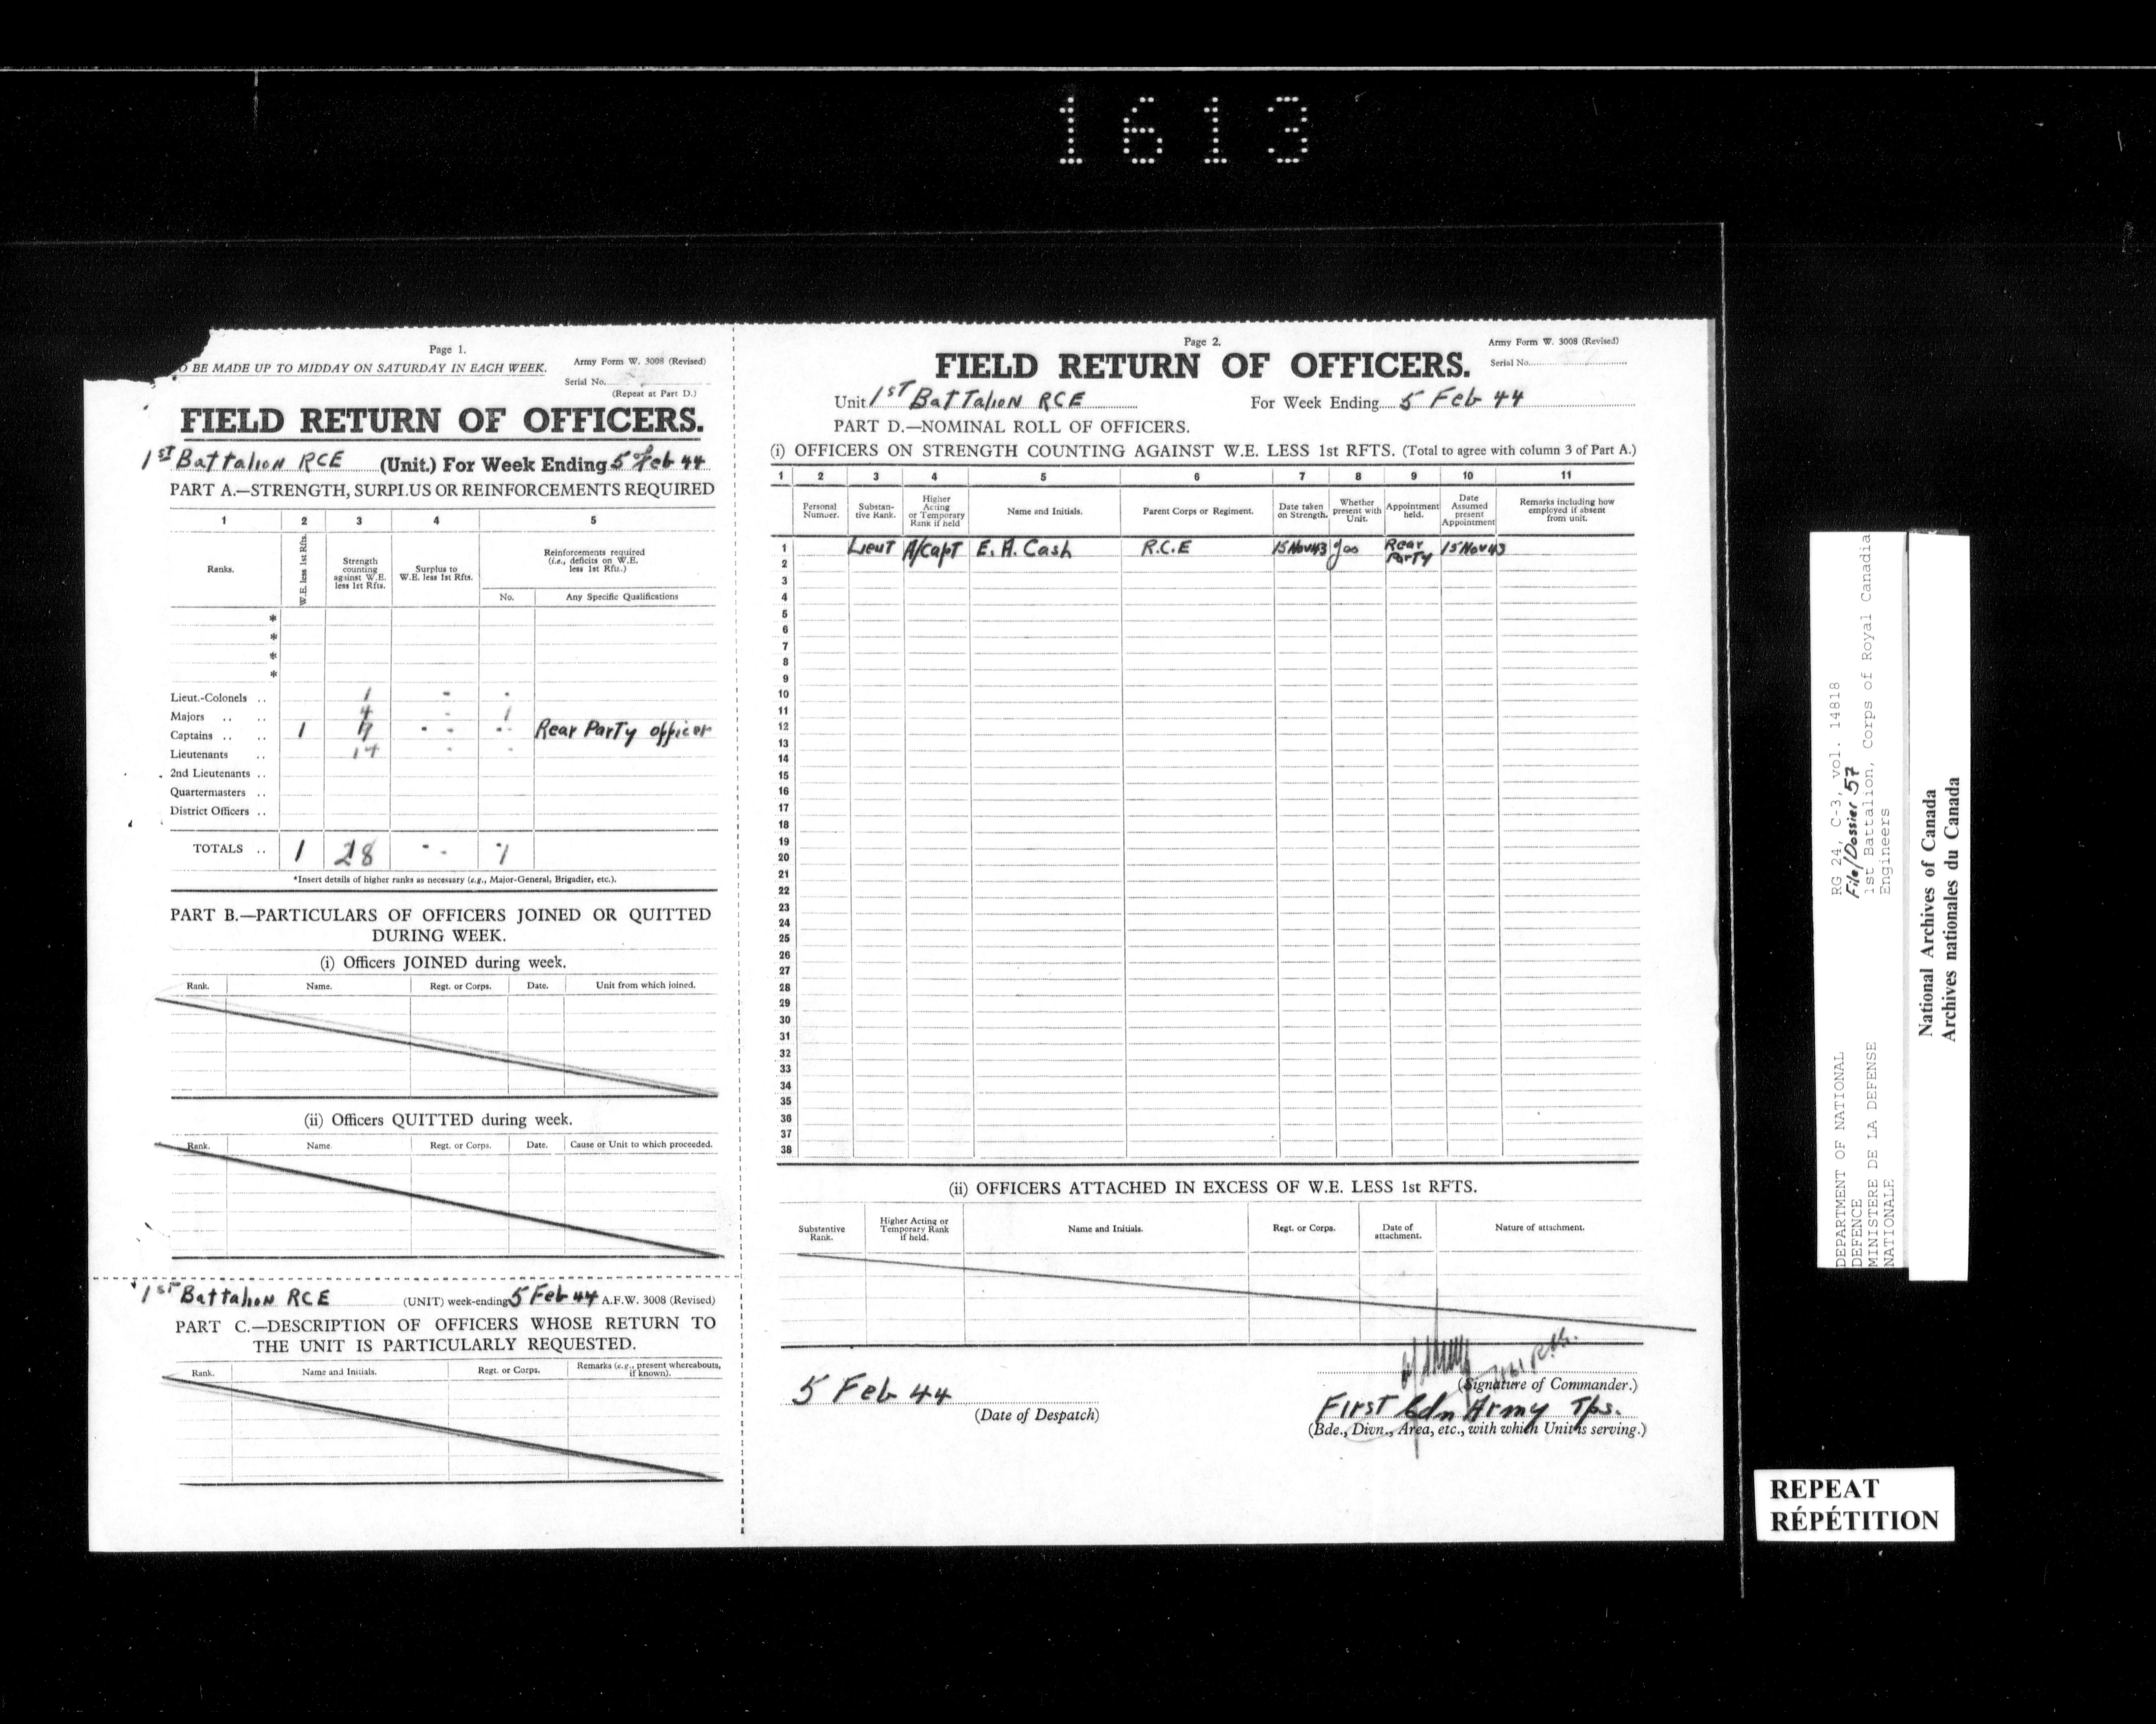 1613
Page 1.
O BE MADE UP TO MIDDAY ON SATURDAY IN EACH WEEK.
Army Form W. 3008 (Revised)
Serial No.
(Repeat at Part D.)
FIELD RETURN OF OFFICERS.
1ST Battalion RCE (Unit.) For Week Ending 5 Feb 44
PART A.—STRENGTH, SURPLUS OR REINFORCEMENTS REQUIRED
1 2 3 4 5
Ranks.
W.E. less 1st Rfts.
Strength counting against W.E. less 1st Rfts.
Surplus to W.E. less 1st Rfts.
Reinforcements required (i.e., deficits on W.E. less 1st Rfts.)
No. Any Specific Qualifications
*
*
*
*
Lieut.-Colonels .. 1 - -
Majors .. .. 4 - 1
Captains .. .. 1 - - - - Rear Party officer
Lieutenants .. 14 - -
2nd Lieutenants ..
Quartermasters ..
District Officers ..
TOTALS .. 1 28 - - 1
*Insert details of higher ranks as necessary (e.g., Major-General, Brigadier, etc.).
PART B.—PARTICULARS OF OFFICERS JOINED OR QUITTED
DURING WEEK.
(i) Officers JOINED during week.
Rank. Name. Regt. or Corps. Date. Unit from which joined.
(ii) Officers QUITTED during week.
Rank. Name. Regt. or Corps. Date. Cause or Unit to which proceeded.
1ST Battalion RCE (UNIT) week-ending 5 Feb 44 A.F.W. 3008 (Revised)
PART C.—DESCRIPTION OF OFFICERS WHOSE RETURN TO
THE UNIT IS PARTICULARLY REQUESTED.
Rank. Name and Initials. Regt. or Corps. Remarks (e.g., present whereabouts, if known).
Page 2.
Army Form W. 3008 (Revised)
FIELD RETURN OF OFFICERS.
Serial No.
Unit 1ST Battalion RCE For Week Ending 5 Feb 44
PART D.—NOMINAL ROLL OF OFFICERS.
(i) OFFICERS ON STRENGTH COUNTING AGAINST W.E. LESS 1st RFTS. (Total to agree with column 3 of Part A.)
1 2 3 4 5 6 7 8 9 10 11
Personal Number.
Substantive Rank.
Higher Acting or Temporary Rank if held
Name and Initials.
Parent Corps or Regiment.
Date taken on Strength.
Whether present with Unit.
Appointment held.
Date Assumed present Appointment
Remarks including how employed if absent from unit.
1 Lieut A/Capt E. A. Cash R.C.E 15 Nov 43 yes Rear Party 15 Nov 43
2
3
4
5
6
7
8
9
10
11
12
13
14
15
16
17
18
19
20
21
22
23
24
25
26
27
28
29
30
31
32
33
34
35
36
37
38
(ii) OFFICERS ATTACHED IN EXCESS OF W.E. LESS 1st RFTS.
Substantive Rank.
Higher Acting or Temporary Rank if held.
Name and Initials.
Regt. or Corps.
Date of attachment.
Nature of attachment.
5 Feb 44
(Date of Despatch)
(Signature of Commander.)
First Cdn Army Tps.
(Bde., Divn., Area, etc., with which Unit is serving.)
RG 24, C-3, vol. 14818
File/Dossier 57
1st Battalion, Corps of Royal Canadia
Engineers
DEPARTMENT OF NATIONAL
DEFENCE
MINISTERE DE LA DEFENSE
NATIONALE
National Archives of Canada
Archives nationales du Canada
REPEAT
RÉPÉTITION